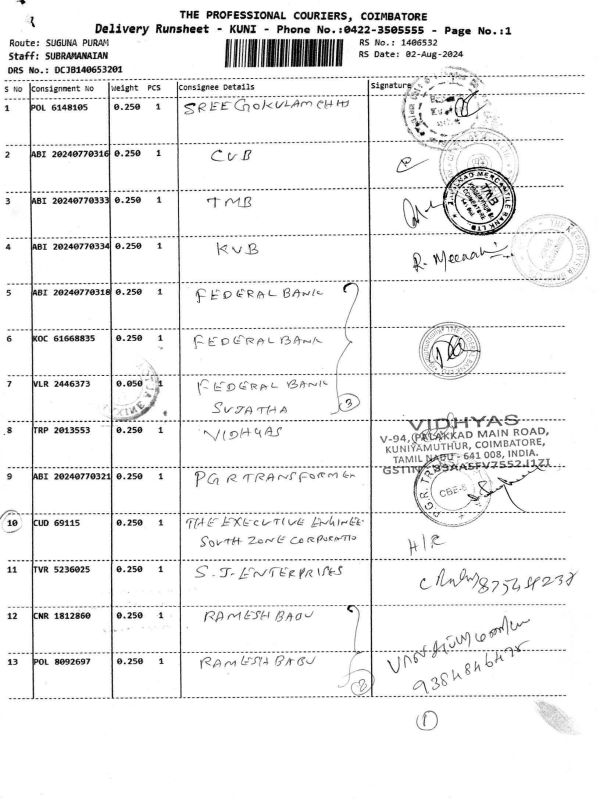 THE PROFESSIONAL COURIERS, COIMBATORE
Delivery Runsheet - KUNI - Phone No.:0422-3505555 - Page No.:1
Route: SUGUNA PURAM
RS No.: 1406532
Staff: SUBRAMANAIAN
RS Date: 02-Aug-2024
DRS No.: DCJB140653201
S No Consignment No Weight PCS Consignee Details Signature
1 POL 6148105 0.250 1 SREE GOKULAM CHI
2 ABI 20240770316 0.250 1 CUB
3 ABI 20240770333 0.250 1 TMB
4 ABI 20240770334 0.250 1 KVB R. Meenakshi
5 ABI 20240770318 0.250 1 FEDERAL BANK
6 KOC 61668835 0.250 1 FEDERAL BANK
7 VLR 2446373 0.050 1 FEDERAL BANK
SUJATHA 3
8 TRP 2013553 0.250 1 VIDHYAS
VIDHYAS
V-94, (PALAKKAD MAIN ROAD,
KUNIYAMUTHUR, COIMBATORE,
TAMIL NADU - 641 008, INDIA.
9 ABI 20240770321 0.250 1 PGR TRANSFORMER
P.G.R. CBE-8
10 CUD 69115 0.250 1 THE EXECUTIVE ENGINEE
SOUTH ZONE CORPORATIO H/R
11 TVR 5236025 0.250 1 S.J. ENTERPRISES
12 CNR 1812860 0.250 1 RAMESH BABU
13 POL 8092697 0.250 1 RAMESH BABU 2
9384846475
1